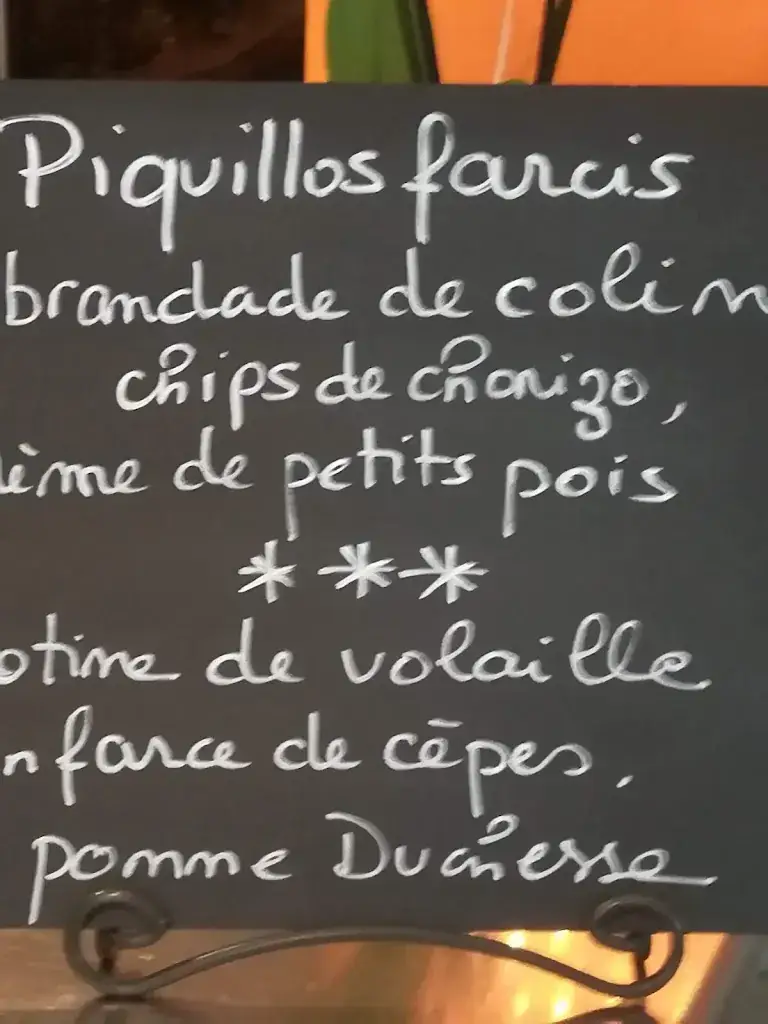 Piquillos farcis
brandade de colin
chips de chorizo,
ème de petits pois
***
otine de volaille
n farce de cêpes.
pomme Duchesse